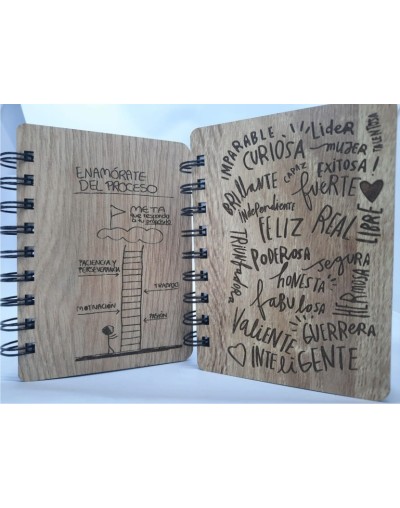 ENAMÓRATE
DEL PROCESO
META
PACIENCIA Y
PERSEVERANCIA
TRABAJO
MOTIVACIÓN
PASIÓN
IMPARABLE
CURIOSA
Lider
mujer
TALENTOSA
BRILLANTE
CAPAZ
EXITOSA!
fuerte
independiente
FELIZ
REAL
LIBRE
TRIUNFADORA
PODEROSA
segura
HONESTA
HERMOSA
fabulosa
VALIENTE
GUERRERA
INTELIGENTE